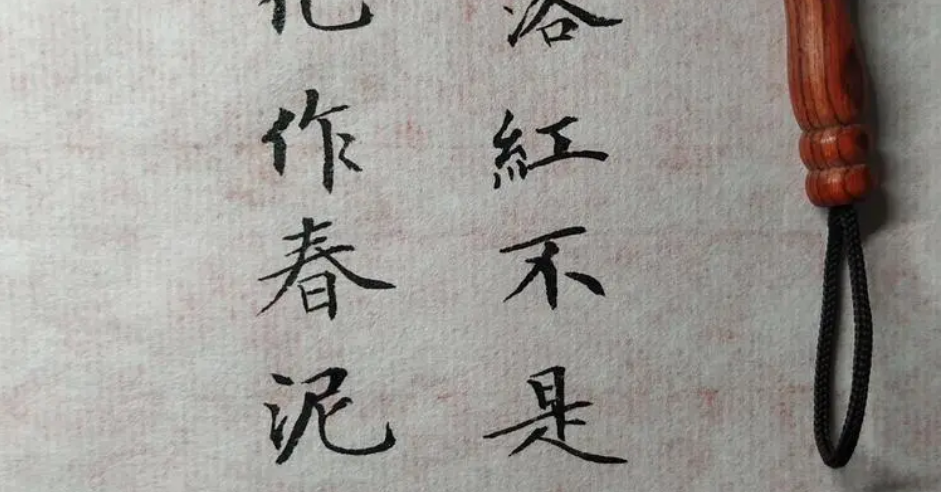 落紅不是
化作春泥